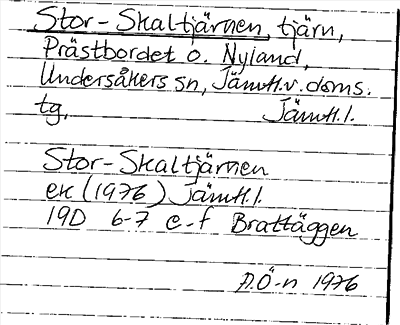 Stor-Skaltjärnen, tjärn,
Prästbordet o. Nyland,
Undersåkers sn, Jämtl.v.doms.
tg, Jämtl.l.
Stor-Skaltjärnen
ek (1976) Jämtl.l.
19D 6-7 e-f Brattäggen
A.Ö-n 1976